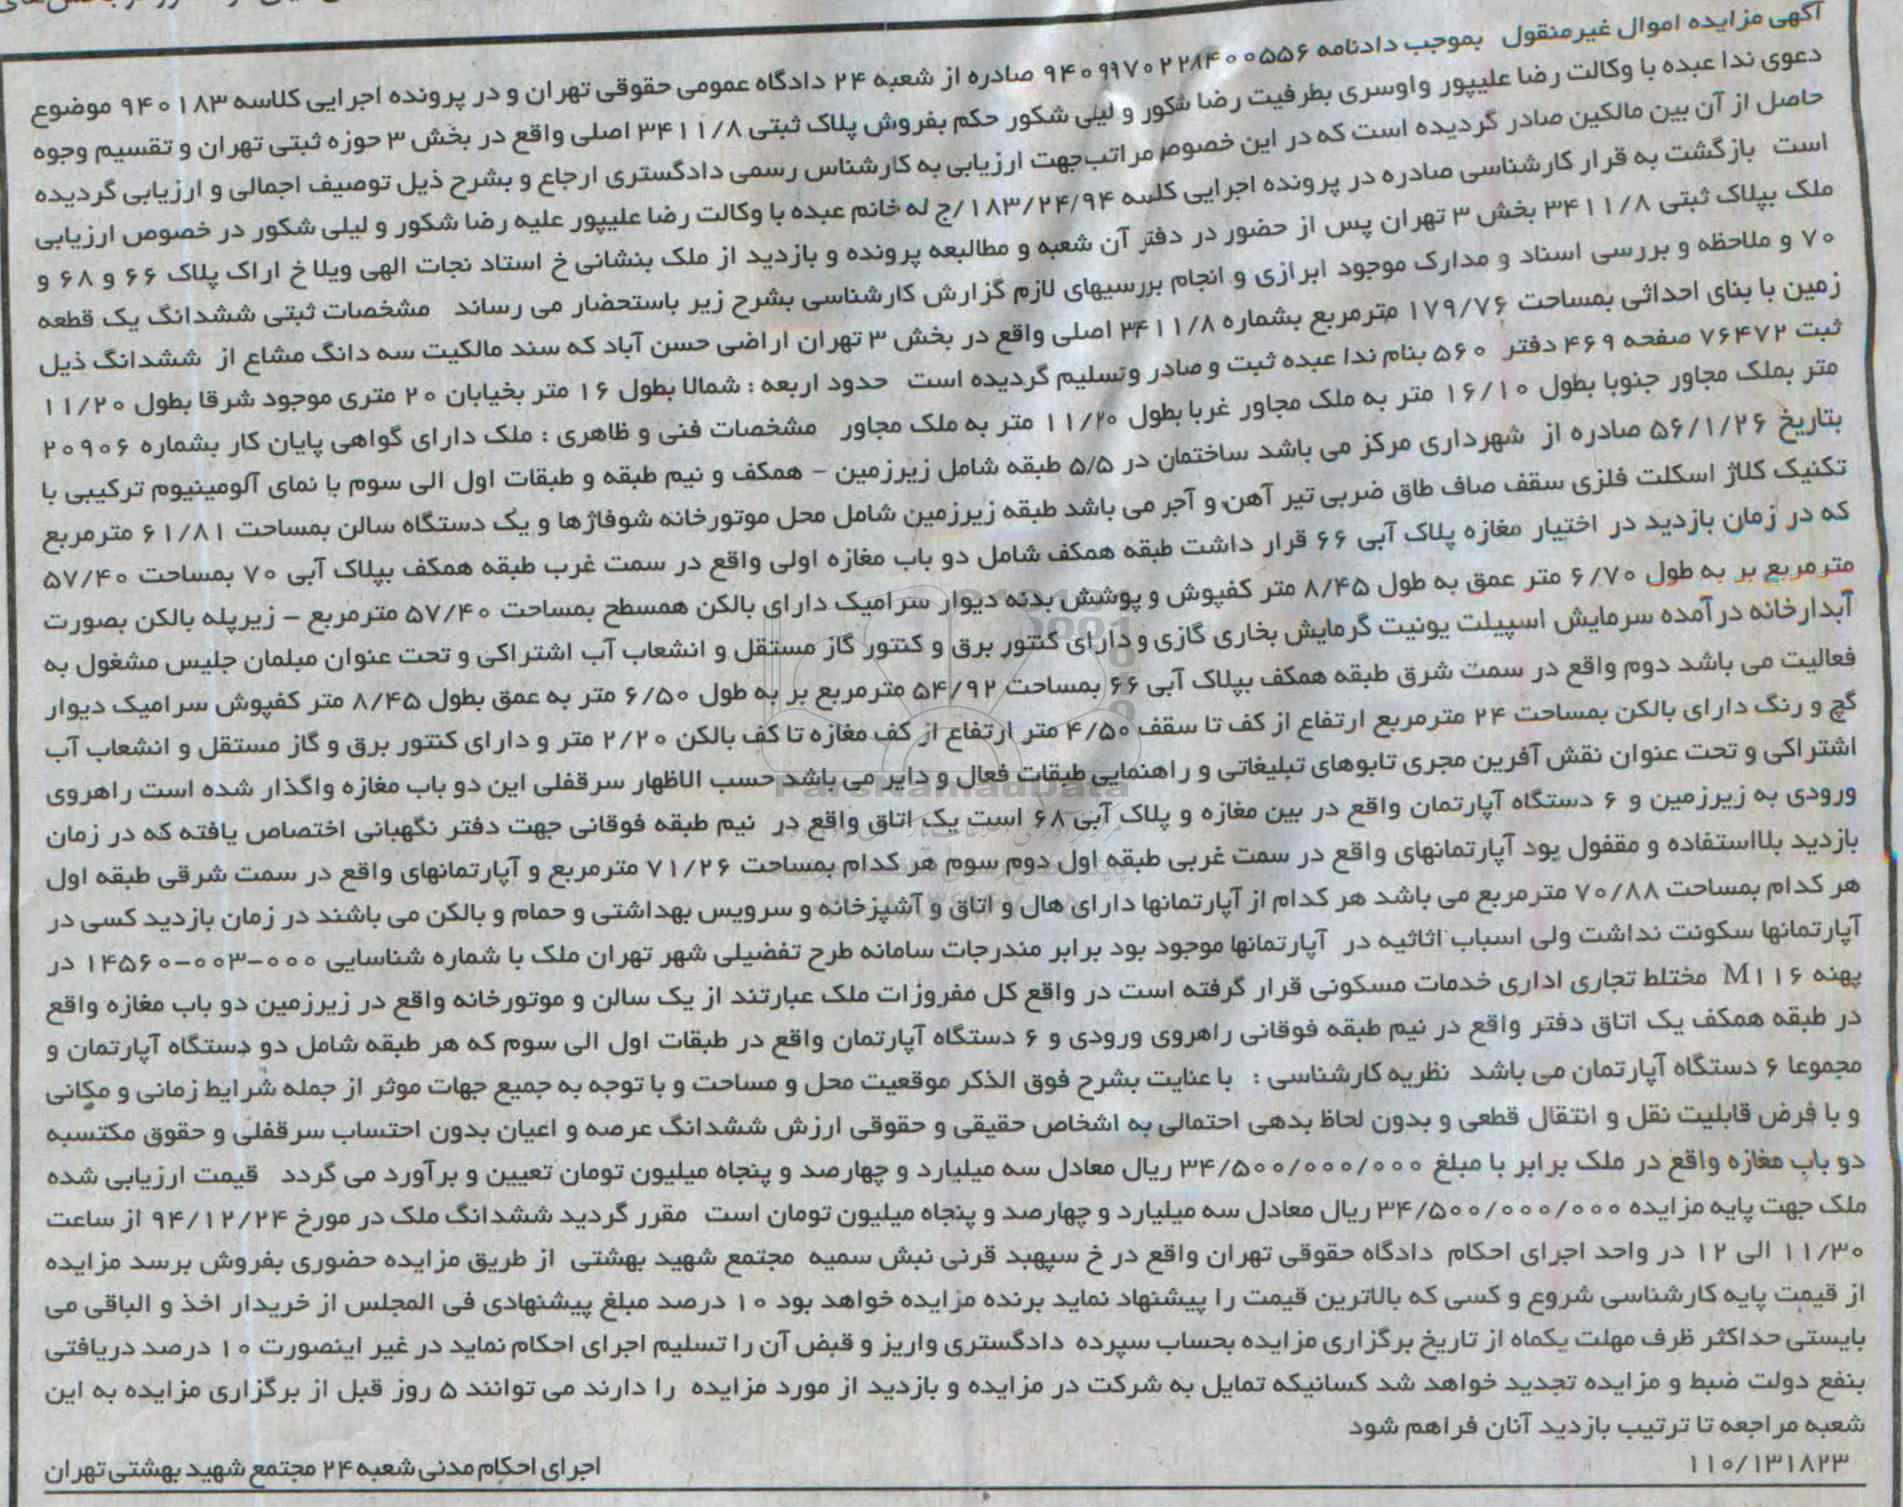 آگهی مزایده اموال غیرمنقول بموجب دادنامه ۹۴۰۹۹۷۰۲۲۸۴۰۰۵۵۶ صادره از شعبه ۲۴ دادگاه عمومی حقوقی تهران و در پرونده اجرایی کلاسه ۹۴۰۱۸۳ موضوع
دعوی ندا عبده با وکالت رضا علیپور واوسری بطرفیت رضا شکور و لیلی شکور حکم بفروش پلاک ثبتی ۳۴۱۱/۸ اصلی واقع در بخش ۳ حوزه ثبتی تهران و تقسیم وجوه
حاصل از آن بین مالکین صادر گردیده است که در این خصوص مراتب جهت ارزیابی به کارشناس رسمی دادگستری ارجاع و بشرح ذیل توصیف اجمالی و ارزیابی گردیده
است بازگشت به قرار کارشناسی صادره در پرونده اجرایی کلسه ۱۸۳/۲۴/۹۴/ج له خانم عبده با وکالت رضا علیپور علیه رضا شکور و لیلی شکور در خصوص ارزیابی
ملک بپلاک ثبتی ۳۴۱۱/۸ بخش ۳ تهران پس از حضور در دفتر آن شعبه و مطالبعه پرونده و بازدید از ملک بنشانی خ استاد نجات الهی ویلا خ اراک پلاک ۶۶ و ۶۸ و
۷۰ و ملاحظه و بررسی اسناد و مدارک موجود ابرازی و انجام بررسیهای لازم گزارش کارشناسی بشرح زیر باستحضار می رساند مشخصات ثبتی ششدانگ یک قطعه
زمین با بنای احداثی بمساحت ۱۷۹/۷۶ مترمربع بشماره ۳۴۱۱/۸ اصلی واقع در بخش ۳ تهران اراضی حسن آباد که سند مالکیت سه دانگ مشاع از ششدانگ ذیل
ثبت ۷۶۴۷۲ صفحه ۴۶۹ دفتر ۵۶۰ بنام ندا عبده ثبت و صادر وتسلیم گردیده است حدود اربعه : شمالا بطول ۱۶ متر بخیابان ۲۰ متری موجود شرقا بطول ۱۱/۲۰
متر بملک مجاور جنوبا بطول ۱۶/۱۰ متر به ملک مجاور غربا بطول ۱۱/۲۰ متر به ملک مجاور مشخصات فنی و ظاهری : ملک دارای گواهی پایان کار بشماره ۲۰۹۰۶
بتاریخ ۵۶/۱/۲۶ صادره از شهرداری مرکز می باشد ساختمان در ۵/۵ طبقه شامل زیرزمین – همکف و نیم طبقه و طبقات اول الی سوم با نمای آلومینیوم ترکیبی با
تکنیک کلاژ اسکلت فلزی سقف صاف طاق ضربی تیر آهن و آجر می باشد طبقه زیرزمین شامل محل موتورخانه شوفاژها و یک دستگاه سالن بمساحت ۶۱/۸۱ مترمربع
که در زمان بازدید در اختیار مغازه پلاک آبی ۶۶ قرار داشت طبقه همکف شامل دو باب مغازه اولی واقع در سمت غرب طبقه همکف بپلاک آبی ۷۰ بمساحت ۵۷/۴۰
مترمربع بر به طول ۶/۷۰ متر عمق به طول ۸/۴۵ متر کفپوش و پوشش بدنه دیوار سرامیک دارای بالکن همسطح بمساحت ۵۷/۴۰ مترمربع – زیرپله بالکن بصورت
آبدارخانه درآمده سرمایش اسپیلت یونیت گرمایش بخاری گازی و دارای کنتور برق و کنتور گاز مستقل و انشعاب آب اشتراکی و تحت عنوان مبلمان جلیس مشغول به
فعالیت می باشد دوم واقع در سمت شرق طبقه همکف بپلاک آبی ۶۶ بمساحت ۵۴/۹۲ مترمربع بر به طول ۶/۵۰ متر به عمق بطول ۸/۴۵ متر کفپوش سرامیک دیوار
گچ و رنگ دارای بالکن بمساحت ۲۴ مترمربع ارتفاع از کف تا سقف ۴/۵۰ متر ارتفاع از کف مغازه تا کف بالکن ۲/۲۰ متر و دارای کنتور برق و گاز مستقل و انشعاب آب
اشتراکی و تحت عنوان نقش آفرین مجری تابوهای تبلیغاتی و راهنمایی طبقات فعال و دایر می باشد حسب الاظهار سرقفلی این دو باب مغازه واگذار شده است راهروی
ورودی به زیرزمین و ۶ دستگاه آپارتمان واقع در بین مغازه و پلاک آبی ۶۸ است یک اتاق واقع در نیم طبقه فوقانی جهت دفتر نگهبانی اختصاص یافته که در زمان
بازدید بلااستفاده و مقفول بود آپارتمانهای واقع در سمت غربی طبقه اول دوم سوم هر کدام بمساحت ۷۱/۲۶ مترمربع و آپارتمانهای واقع در سمت شرقی طبقه اول
هر کدام بمساحت ۷۰/۸۸ مترمربع می باشد هر کدام از آپارتمانها دارای هال و اتاق و آشپزخانه و سرویس بهداشتی و حمام و بالکن می باشند در زمان بازدید کسی در
آپارتمانها سکونت نداشت ولی اسباب اثاثیه در آپارتمانها موجود بود برابر مندرجات سامانه طرح تفضیلی شهر تهران ملک با شماره شناسایی ۰۰۰-۰۰۳-۱۴۵۶۰ در
پهنه M۱۱۶ مختلط تجاری اداری خدمات مسکونی قرار گرفته است در واقع کل مفروزات ملک عبارتند از یک سالن و موتورخانه واقع در زیرزمین دو باب مغازه واقع
در طبقه همکف یک اتاق دفتر واقع در نیم طبقه فوقانی راهروی ورودی و ۶ دستگاه آپارتمان واقع در طبقات اول الی سوم که هر طبقه شامل دو دستگاه آپارتمان و
مجموعا ۶ دستگاه آپارتمان می باشد نظریه کارشناسی : با عنایت بشرح فوق الذکر موقعیت محل و مساحت و با توجه به جمیع جهات موثر از جمله شرایط زمانی و مکانی
و با فرض قابلیت نقل و انتقال قطعی و بدون لحاظ بدهی احتمالی به اشخاص حقیقی و حقوقی ارزش ششدانگ عرصه و اعیان بدون احتساب سرقفلی و حقوق مکتسبه
دو باب مغازه واقع در ملک برابر با مبلغ ۳۴/۵۰۰/۰۰۰/۰۰۰ ریال معادل سه میلیارد و چهارصد و پنجاه میلیون تومان تعیین و برآورد می گردد قیمت ارزیابی شده
ملک جهت پایه مزایده ۳۴/۵۰۰/۰۰۰/۰۰۰ ریال معادل سه میلیارد و چهارصد و پنجاه میلیون تومان است مقرر گردید ششدانگ ملک در مورخ ۹۴/۱۲/۲۴ از ساعت
۱۱/۳۰ الی ۱۲ در واحد اجرای احکام دادگاه حقوقی تهران واقع در خ سپهبد قرنی نبش سمیه مجتمع شهید بهشتی از طریق مزایده حضوری بفروش برسد مزایده
از قیمت پایه کارشناسی شروع و کسی که بالاترین قیمت را پیشنهاد نماید برنده مزایده خواهد بود ۱۰ درصد مبلغ پیشنهادی فی المجلس از خریدار اخذ و الباقی می
بایستی حداکثر ظرف مهلت یکماه از تاریخ برگزاری مزایده بحساب سپرده دادگستری واریز و قبض آن را تسلیم اجرای احکام نماید در غیر اینصورت ۱۰ درصد دریافتی
بنفع دولت ضبط و مزایده تجدید خواهد شد کسانیکه تمایل به شرکت در مزایده و بازدید از مورد مزایده را دارند می توانند ۵ روز قبل از برگزاری مزایده به این
شعبه مراجعه تا ترتیب بازدید آنان فراهم شود
۱۱۰/۱۳۱۸۲۳ اجرای احکام مدنی شعبه ۲۴ مجتمع شهید بهشتی تهران
ParsNamadData